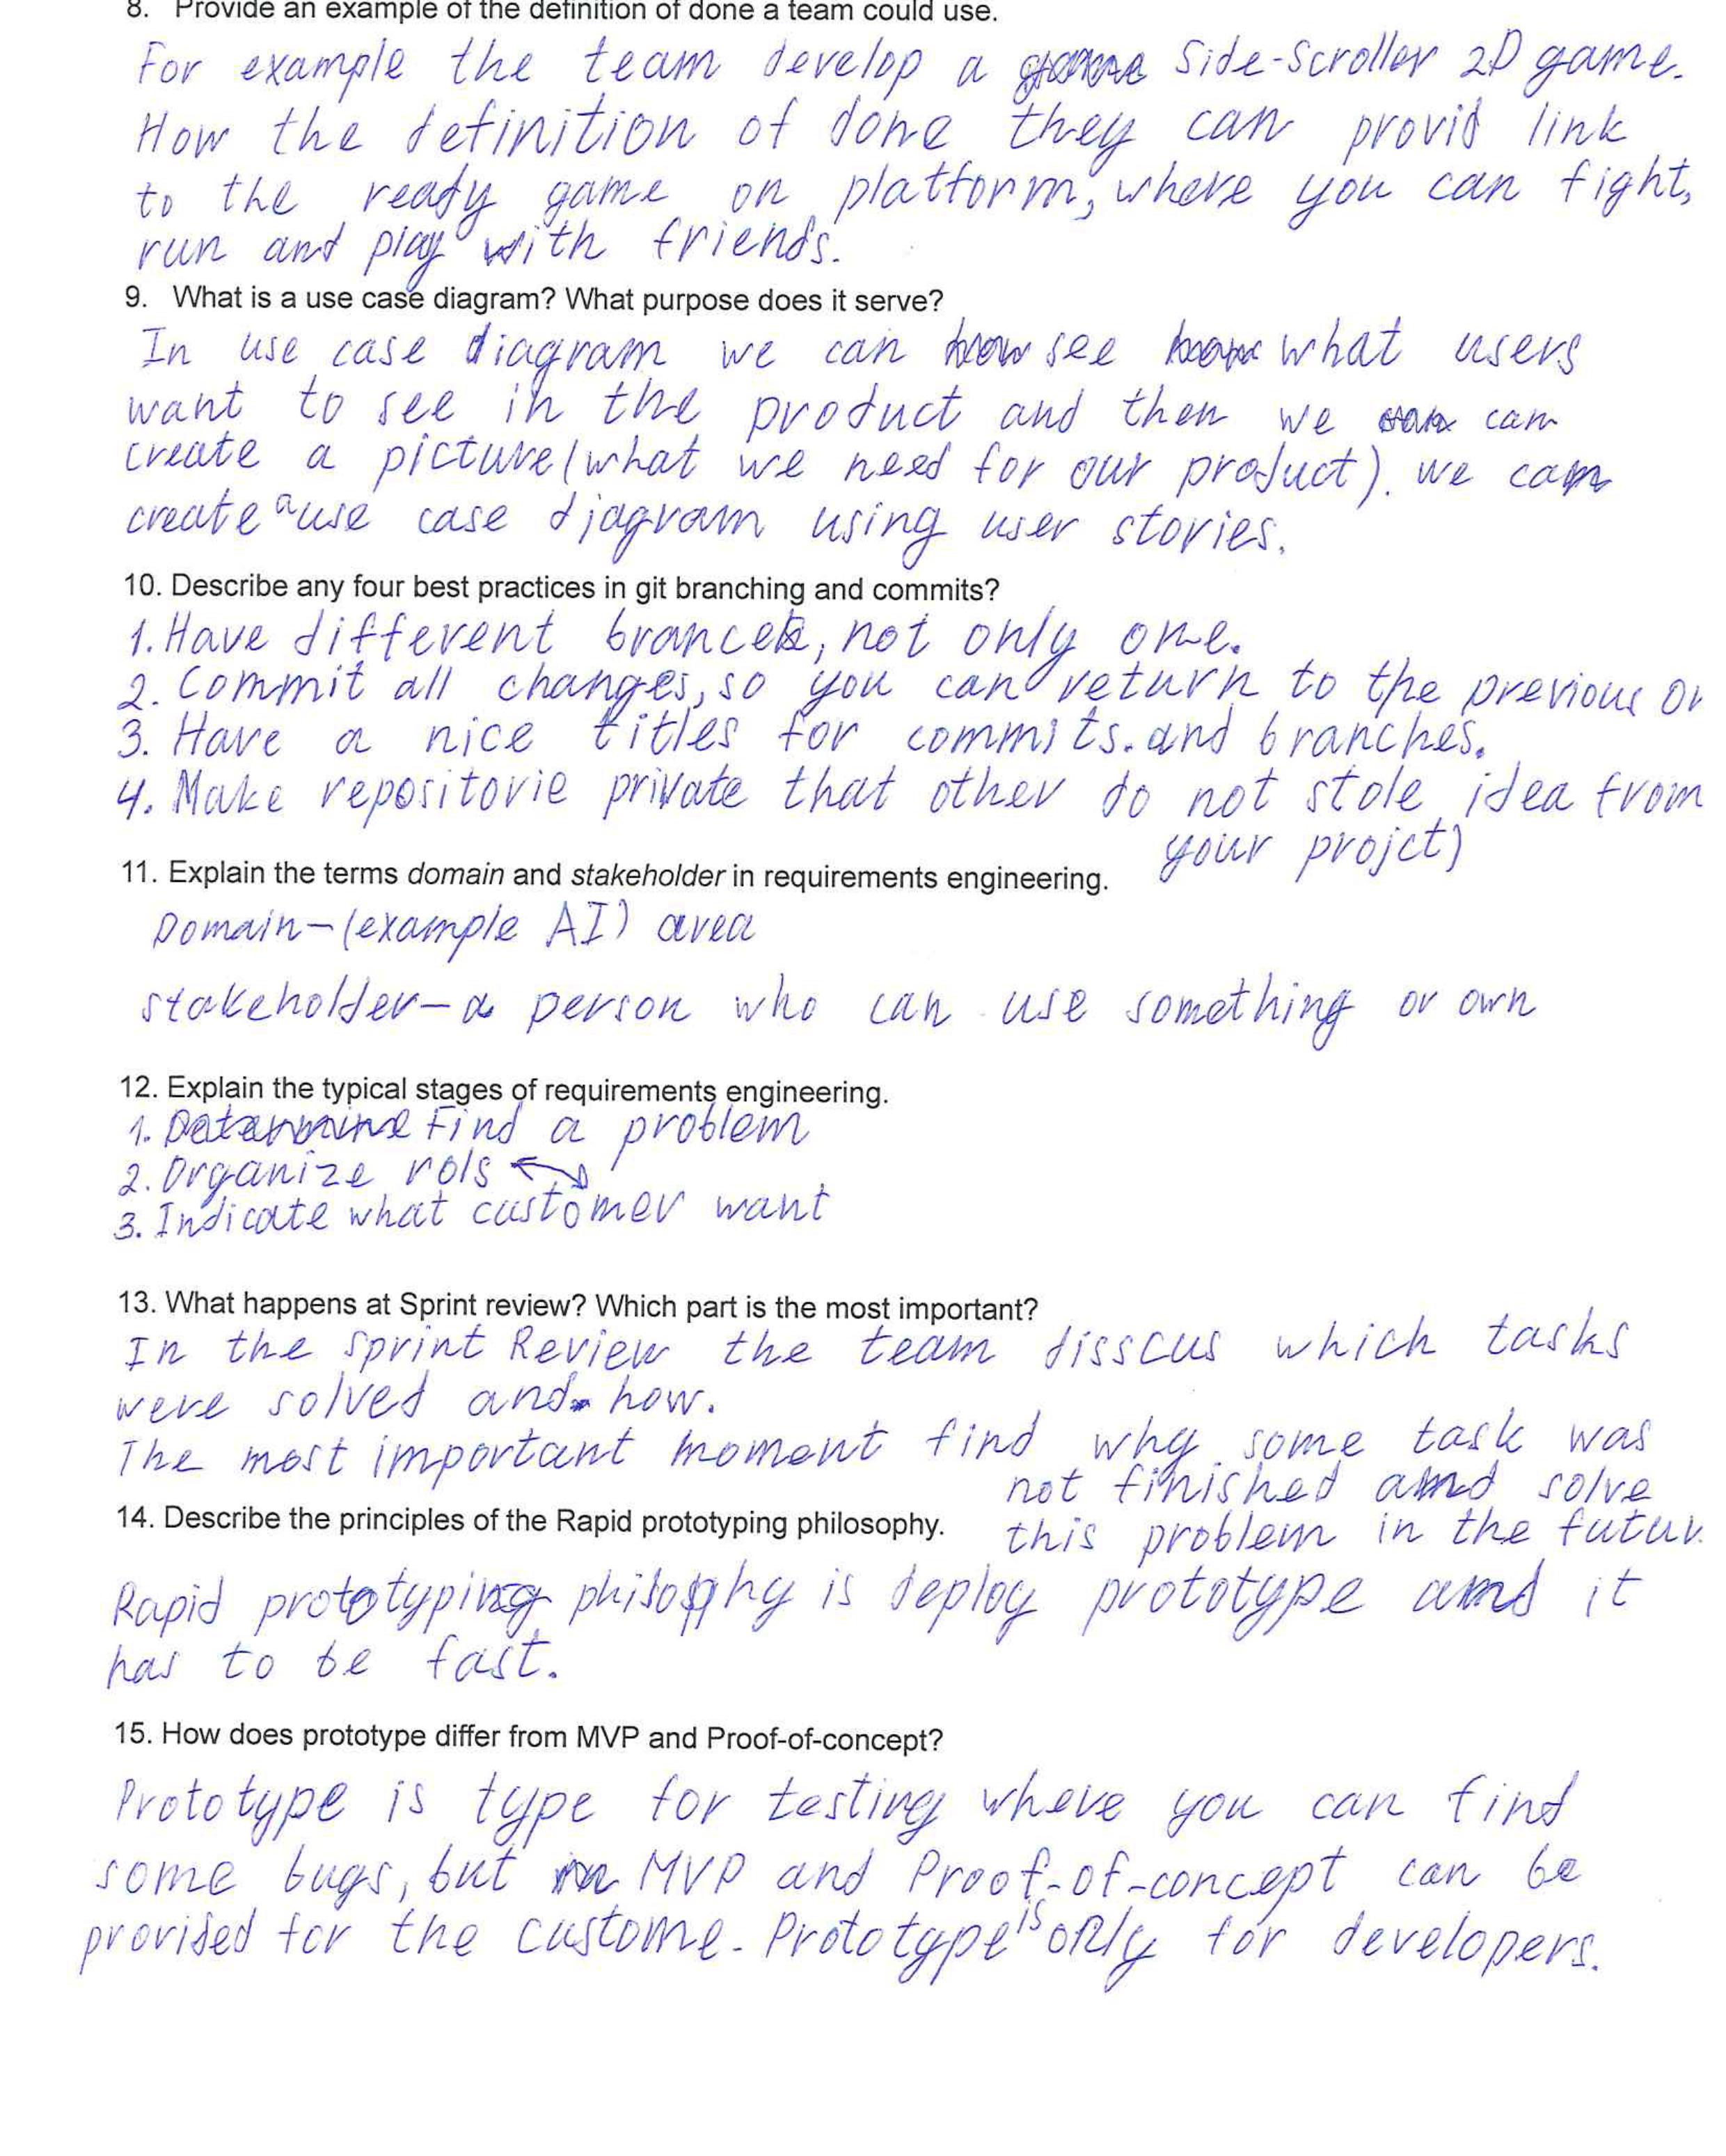 8. Provide an example of the definition of done a team could use.
For example the team develop a game Side-Scroller 2D game.
How the definition of done they can provid link
to the ready game on platform, where you can fight,
run and play with friends.
9. What is a use case diagram? What purpose does it serve?
In use case diagram we can see what users
want to see in the product and then we can
create a picture (what we need for our product). we can
create a use case diagram using user stories.
10. Describe any four best practices in git branching and commits?
1. Have different brances, not only one.
2. Commit all changes, so you can return to the previous on
3. Have a nice titles for commits. and branches.
4. Make repositorie private that other do not stole idea from
your projct)
11. Explain the terms domain and stakeholder in requirements engineering.
Domain – (example AI) area
stakeholder – a person who can use something or own
12. Explain the typical stages of requirements engineering.
1. Determine Find a problem
2. Organize rols
3. Indicate what customer want
13. What happens at Sprint review? Which part is the most important?
In the Sprint Review the team disscus which tasks
were solved and how.
The most important moment find why some task was
not finished and solve
14. Describe the principles of the Rapid prototyping philosophy.
this problem in the futur
Rapid prototyping philosophy is deploy prototype and it
has to be fast.
15. How does prototype differ from MVP and Proof-of-concept?
Prototype is type for testing where you can find
some bugs, but MVP and Proof-of-concept can be
provided for the custome. Prototype is only for developers.